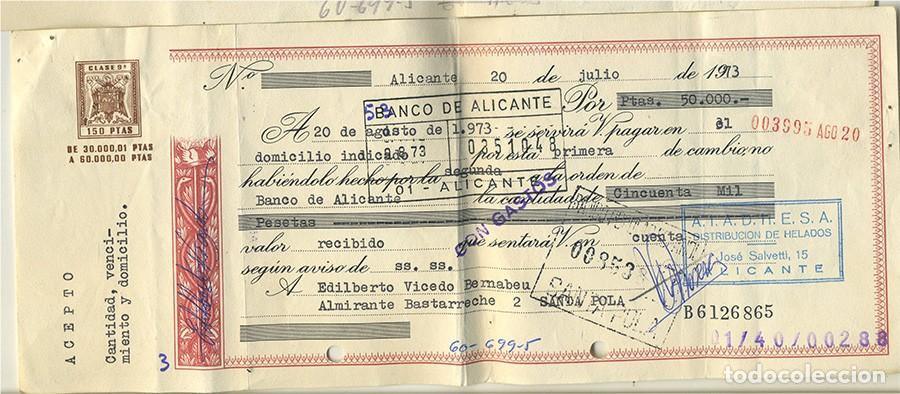 60-699-5
CLASE 9ª
150 PTAS
DE 30.000,01 PTAS
A 60.000,00 PTAS
ACEPTO
Cantidad, venci-
miento y domicilio.
3
N.º Alicante 20 de julio de 1973
BANCO DE ALICANTE
Por Ptas. 50.000.-
A 20 de agosto de 1.973 se servirá V. pagar en el
003995 AGO 20
domicilio indicado por esta primera de cambio, no
873 0351048
habiéndolo hecho por la segunda a la orden de
01 - ALICANTE
Banco de Alicante la cantidad de Cincuenta Mil
Pesetas
CON GASTOS
A.I.A.D.H.E.S.A.
DISTRIBUCION DE HELADOS
José Salvetti, 15
ALICANTE
valor recibido que sentará V. en cuenta
según aviso de ss. ss.
00353
SANTA POLA
A Edilberto Vicedo Bernabeu
Almirante Bastarreche 2 SANTA POLA
B6126865
01/40/00288
60-699-5
todocoleccion